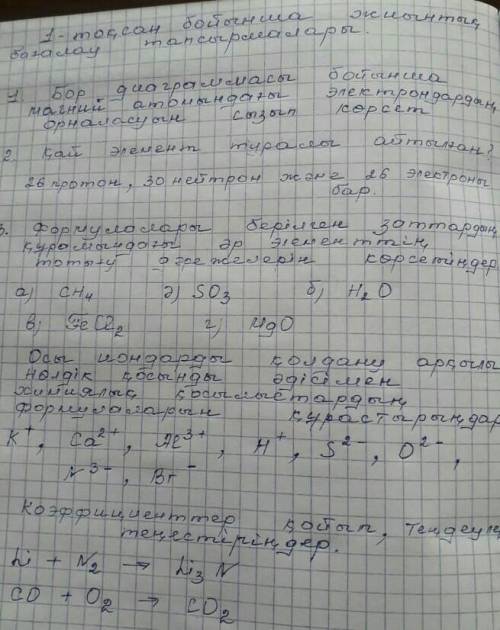 1-тоқсан бойынша жиынтық
бағалау тапсырмалары.
1. Бор диаграммасы бойынша
магний атомындағы электрондардың
орналасуын сызып көрсет
2. Қай элемент туралы айтылған?
26 протон, 30 нейтрон және 26 электроны
бар.
3. Формулалары берілген заттардың
құрамындағы әр элементтің
тотығу дәрежелерін көрсетіңдер
а) CH4 ә) SO3 б) H2O
в) FeCl2 г) MgO
Осы иондарды қолдану арқылы
нөлдік қосынды әдісімен
химиялық қосылыстардың
формулаларын құрастырыңдар
K+, Ca2+, Al3+, H+, S2-, O2-,
N3-, Br-
Коэффициенттер қойып, теңдеулі
теңестіріңдер.
Li + N2 → Li3N
CO + O2 → CO2